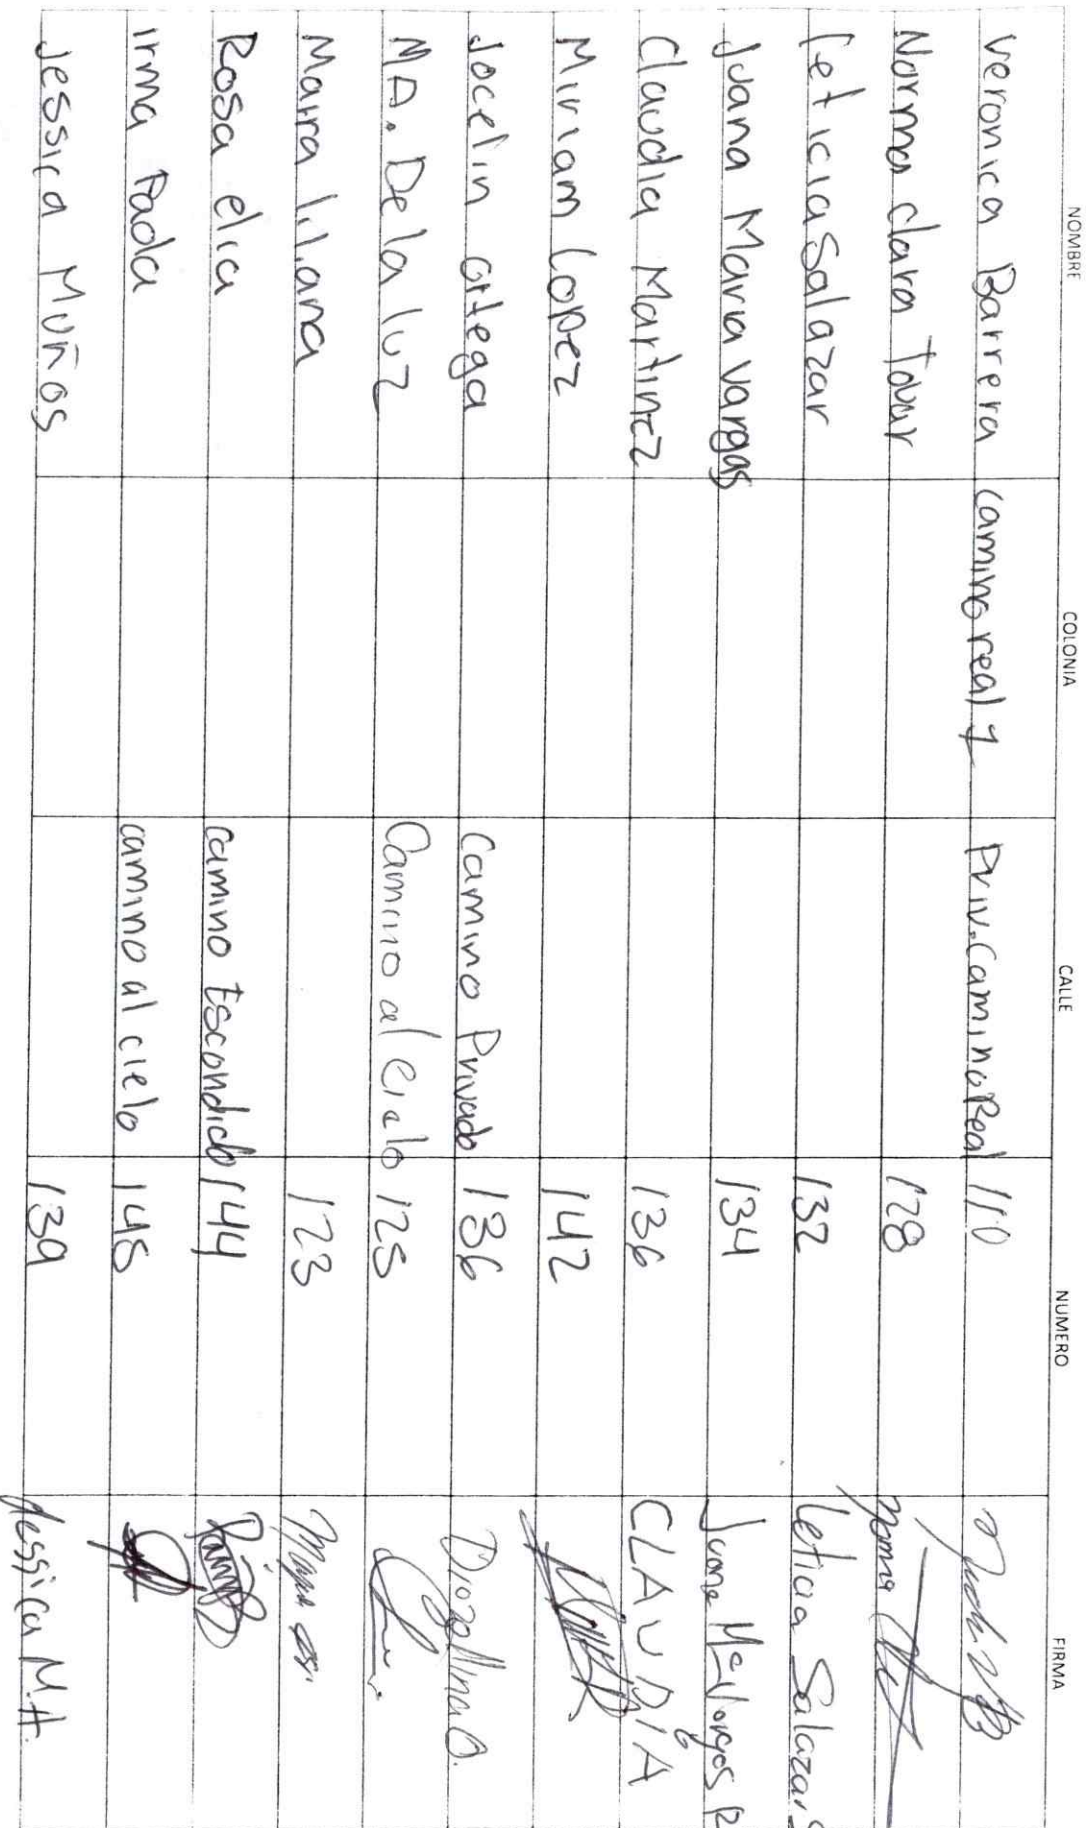 NOMBRE COLONIA CALLE NUMERO FIRMA
Veronica Barrera camino real 1 Priv. Camino Real 110
Norma clara Tovar 128 Norma
Leticia Salazar 132 Leticia Salazar
Juana Maria Vargas 134 Juana Ma Vargas R
Claudia Martinez 136 CLAUDIA
Miriam Lopez 142
Jocelin ortega Camino Privado 136
MA. De la luz Camino al cielo 125
Maira liliana 123
Rosa elia camino Escondido 144
irma Pada camino al cielo 145
Jessica Muños 139 Jessica M.H.